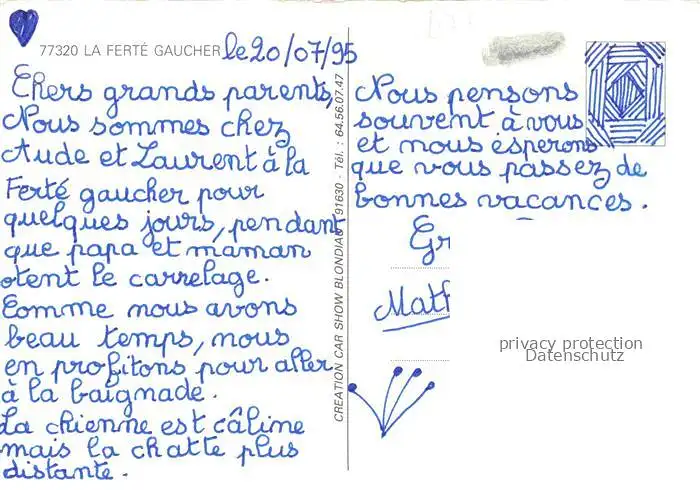 77320 LA FERTÉ GAUCHER le 20/07/95
Chers grands parents,
Nous sommes chez
Aude et Laurent à la
Ferté gaucher pour
quelques jours, pendant
que papa et maman
otent le carrelage.
Comme nous avons
beau temps, nous
en profitons pour aller
à la baignade.
La chienne est câline
mais la chatte plus
distante.
CREATION CAR SHOW BLONDIAU 91630 - Tél. : 64.56.07.47
Nous pensons
souvent à vous
et nous ésperons
que vous passez de
bonnes vacances.
Gr
Math
privacy protection
Datenschutz